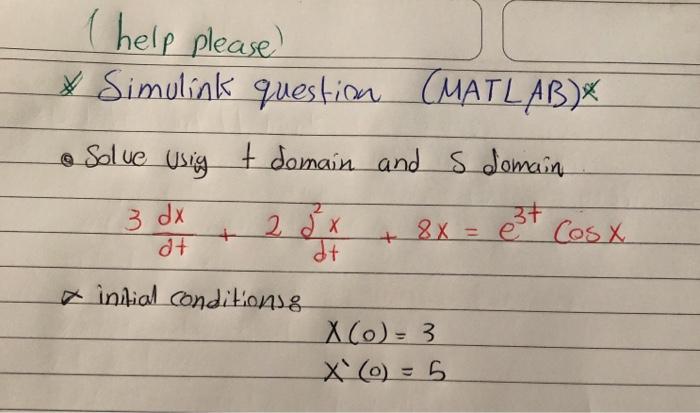 (help please)
* Simulink question (MATLAB)*
• Solve usig t domain and S domain
3 dx/dt + 2 d²x/dt + 8x = e^3t Cos x
* initial conditions:
X(0) = 3
X`(0) = 5